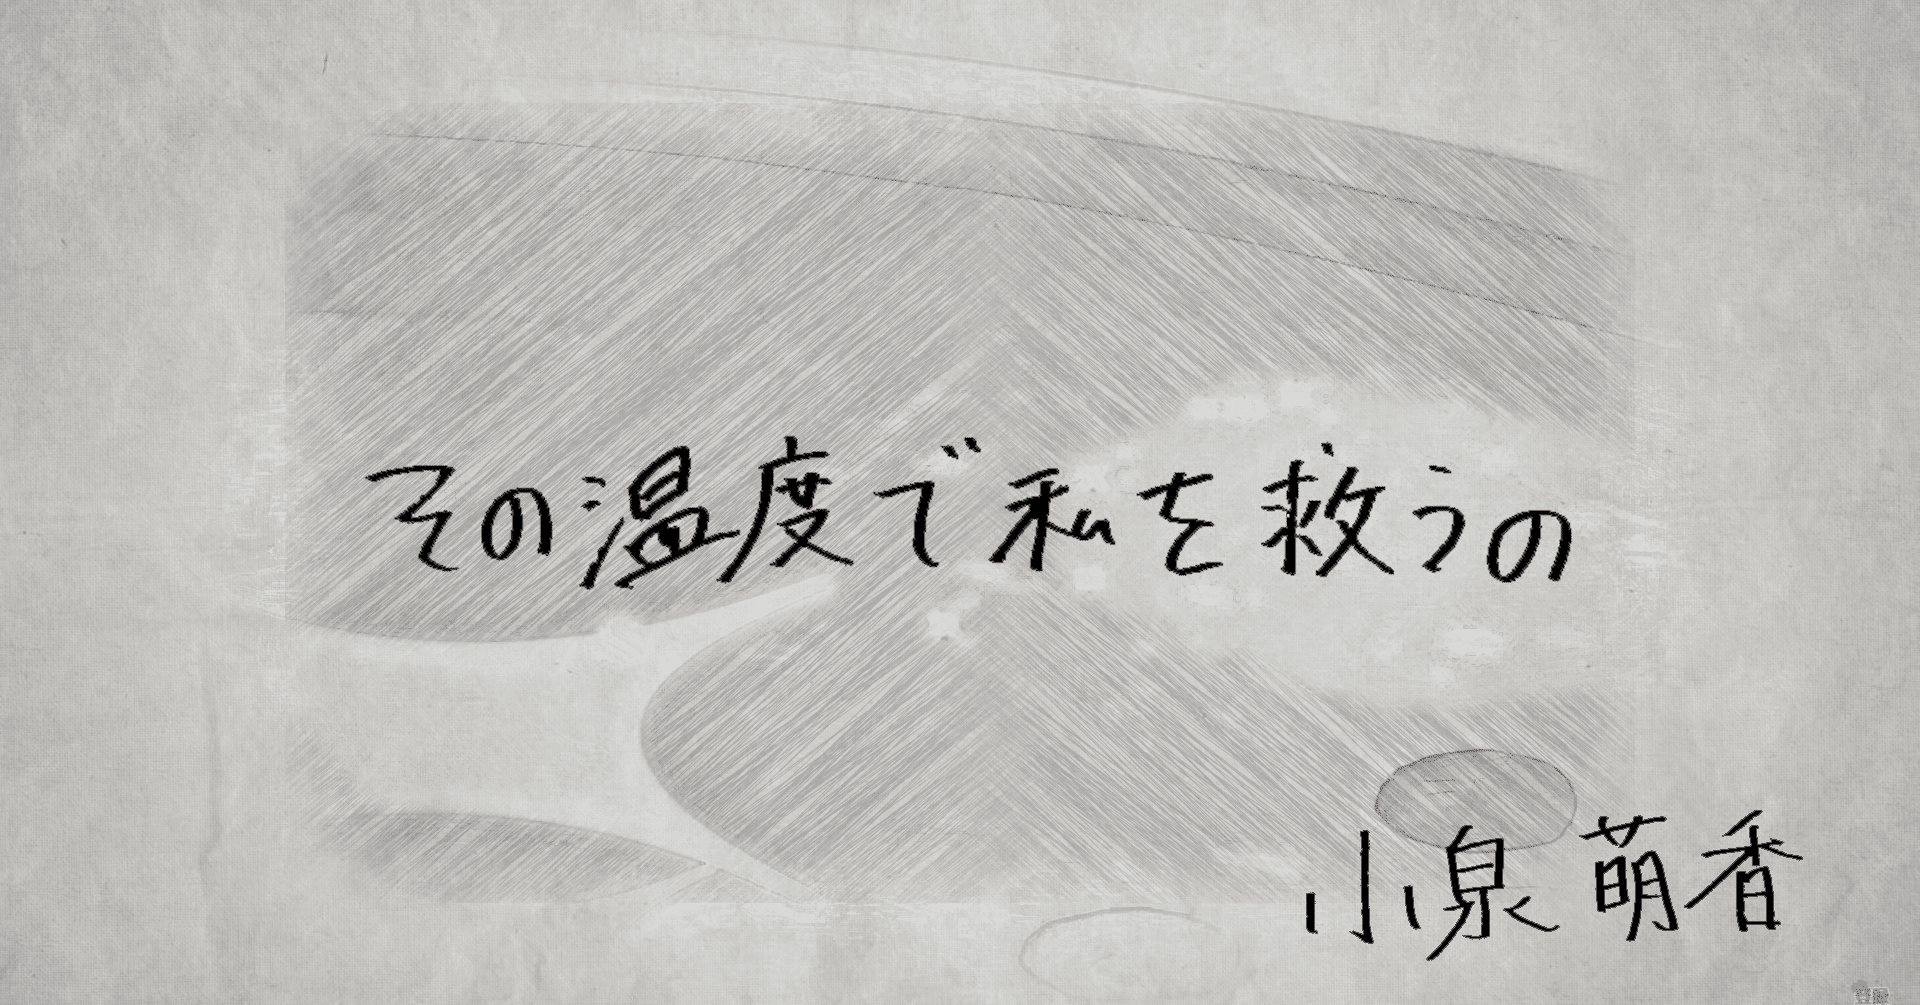 その温度で私を救うの
小泉萌香